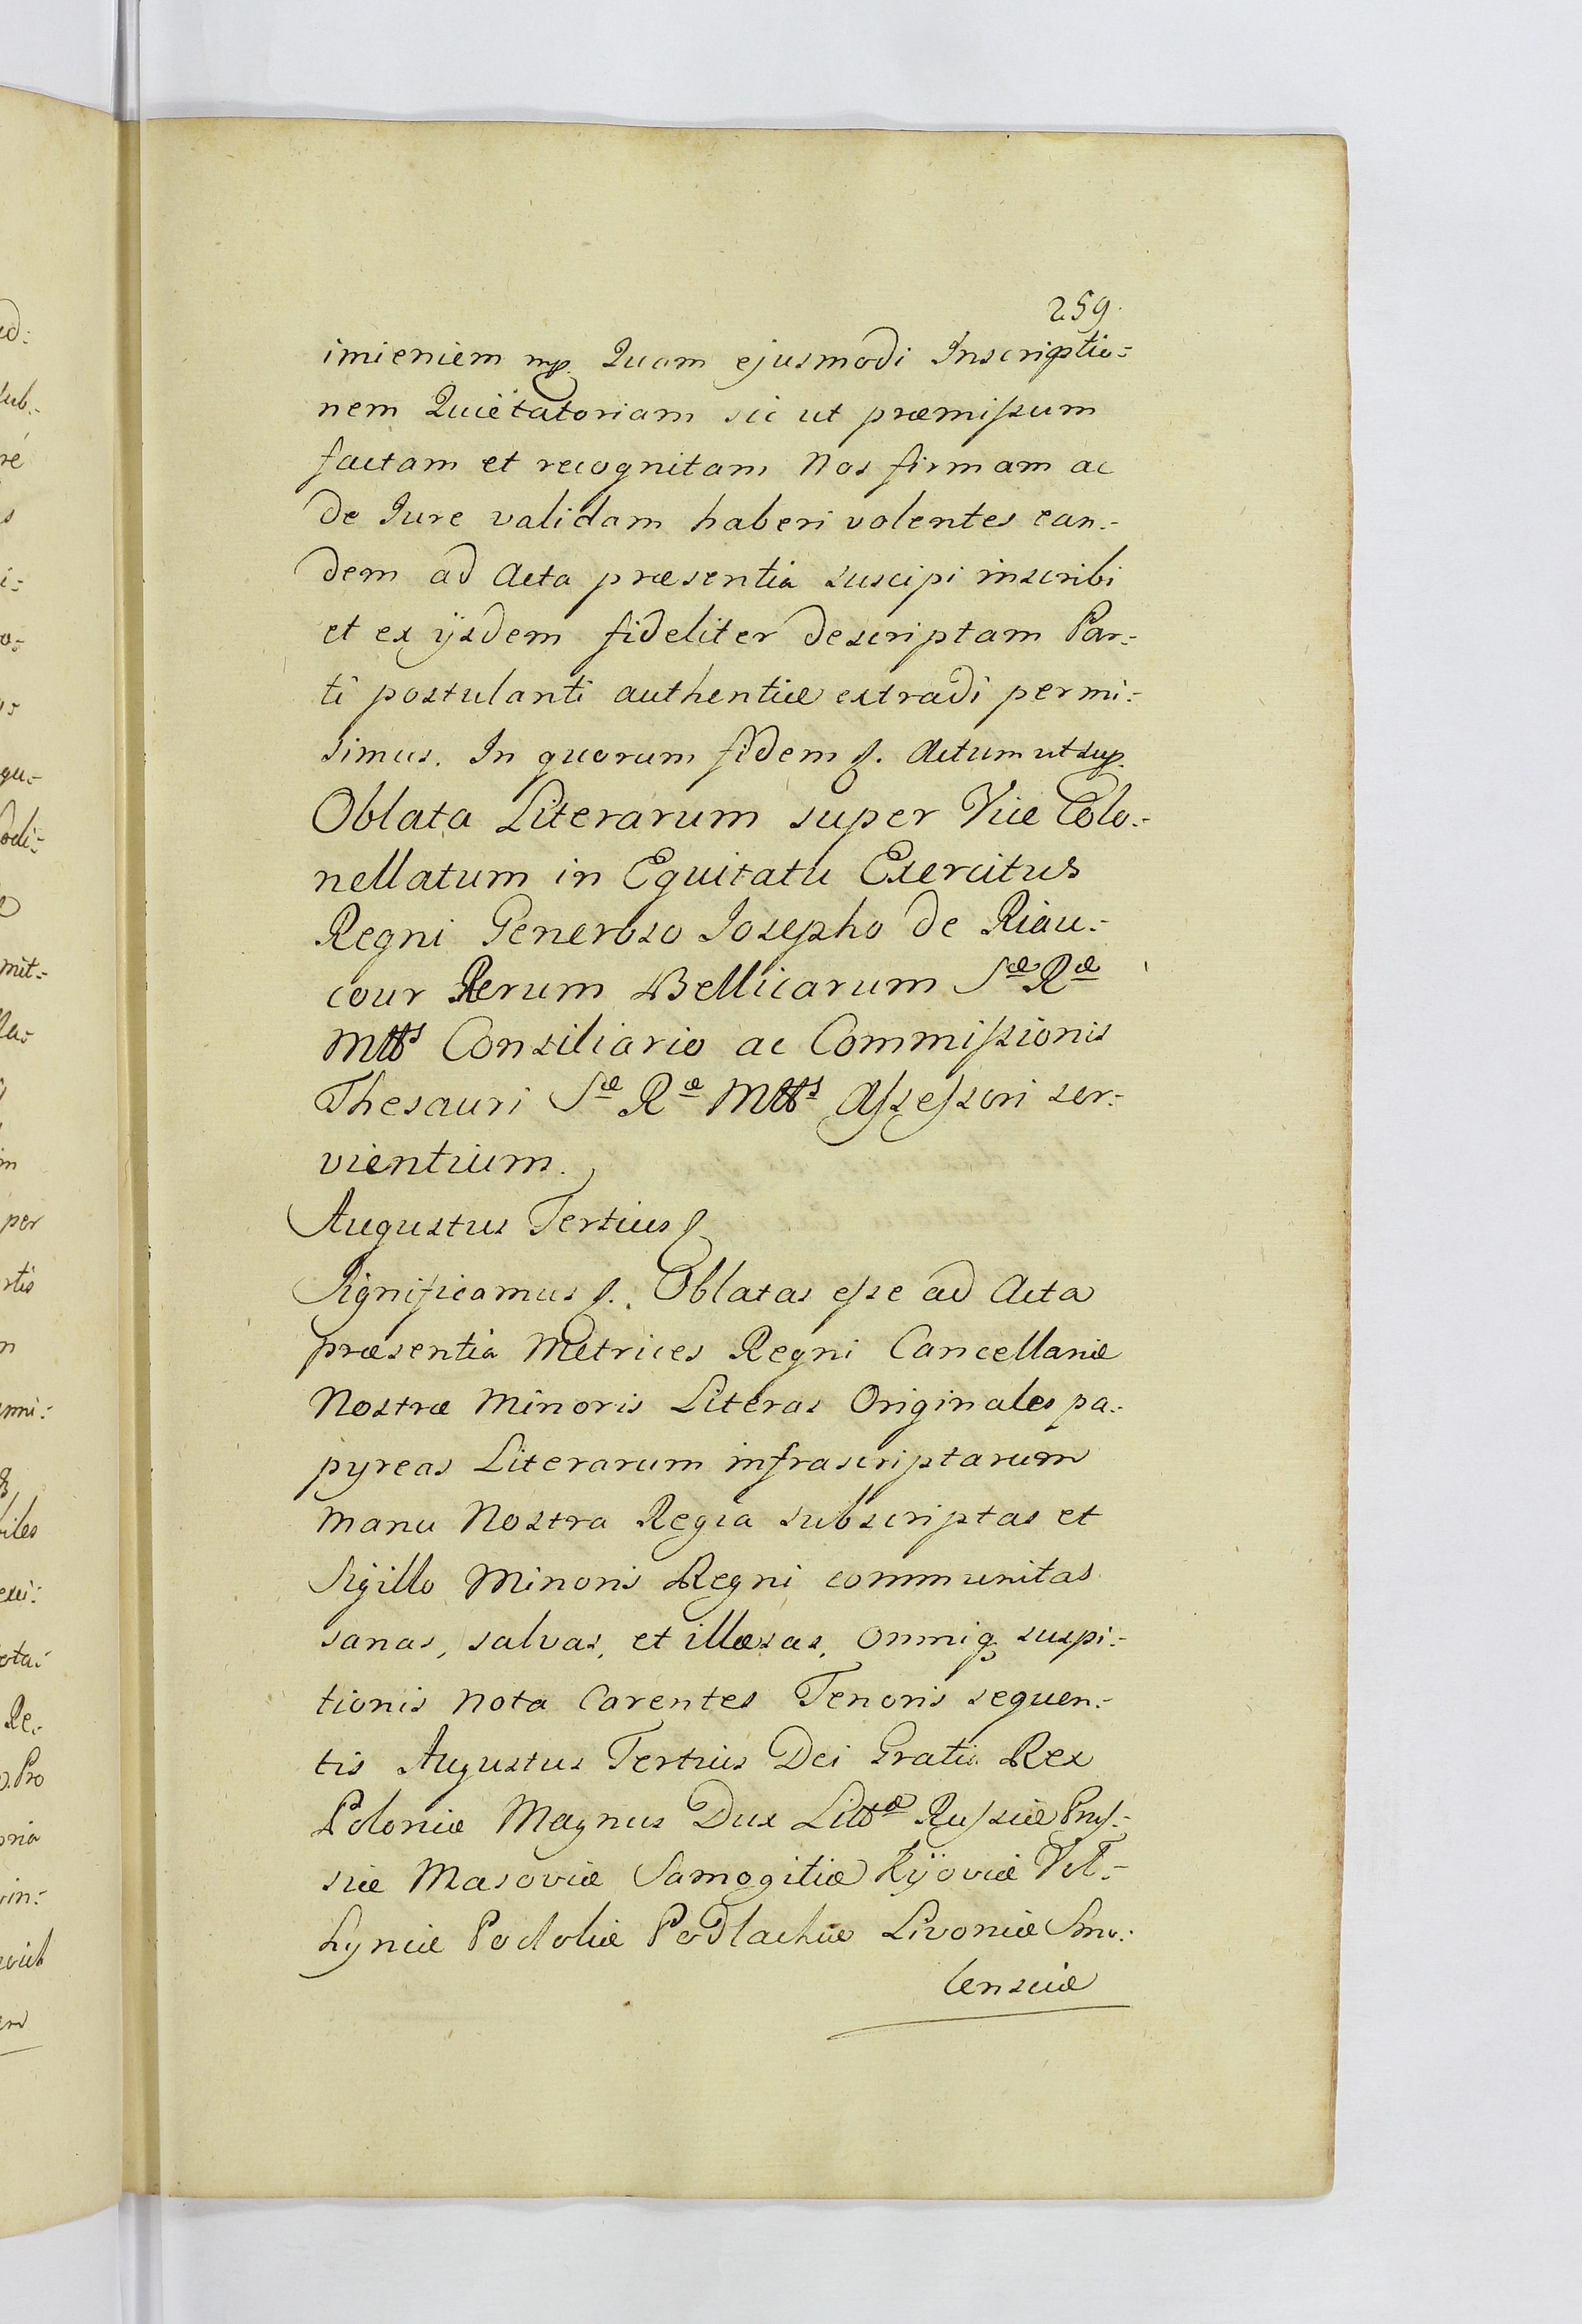 259.
imieniem mp. Quam ejusmodi Inscriptio:
nem Quietatoriam sic ut præmissum
factam et recognitam Nos firmam ac
de Jure validam haberi volentes ean:
dem ad Acta præsentia suscipi inscribi
et ex ijsdem fideliter descriptam Par:
ti postulanti authenticæ extradi permi:
simus. In quorum fidem &. Actum ut sup.
Oblata Literarum super Vice Colo:
nellatum in Equitatu Exercitus
Regni Generoso Josepho de Riau:
cour Rerum Bellicarum Sæ Ræ
Mttis Consiliario ac Commissionis
Thesauri Sæ Ræ Mttis Assessori ser:
vientium.
Augustus Tertius &
Significamus &. Oblatas esse ad Acta
præsentia Metrices Regni Cancellariæ
Nostræ Minoris Literas Originales pa:
pyreas Literarum infrascriptarum
manu Nostra Regia subscriptas et
Sigillo Minoris Regni communitas
sanas, salvas, et illæsas, omniq; suspi:
tionis nota Carentes Tenoris sequen:
tis Augustus Tertius Dei Gratia Rex
Poloniæ Magnus Dux Littæ Russiæ Prus:
siæ Masoviæ Samogitiæ Kijoviæ Vol:
hyniæ Podoliæ Podlachiæ Livoniæ Smo:
lensciæ